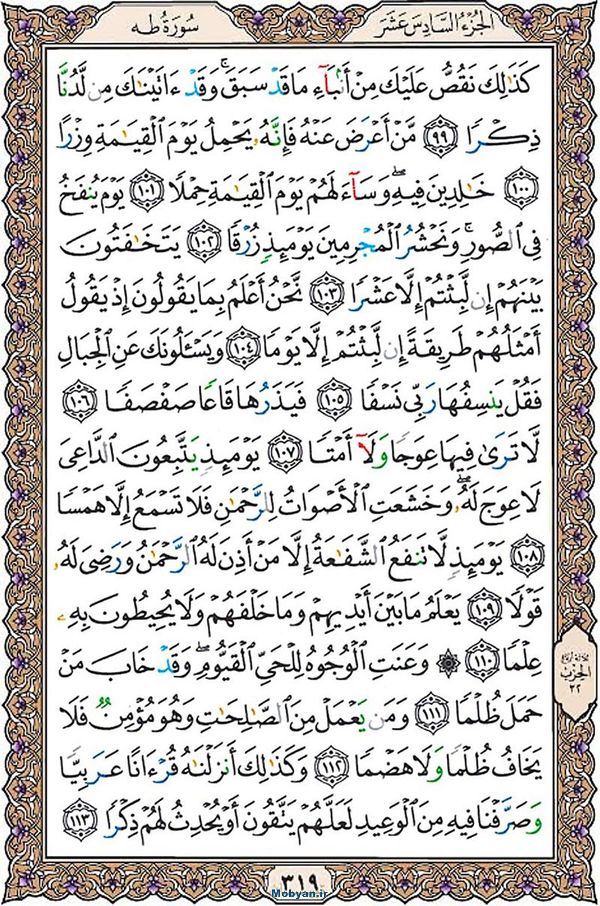 الجُزءُ السَّادِس عَشَرَ
سُورَةُ طه
كَذَٰلِكَ نَقُصُّ عَلَيۡكَ مِنۡ أَنۢبَآءِ مَا قَدۡ سَبَقَۚ وَقَدۡ ءَاتَيۡنَٰكَ مِن لَّدُنَّا
ذِكۡرٗا ٩٩ مَّنۡ أَعۡرَضَ عَنۡهُ فَإِنَّهُۥ يَحۡمِلُ يَوۡمَ ٱلۡقِيَٰمَةِ وِزۡرًا
١٠٠ خَٰلِدِينَ فِيهِۖ وَسَآءَ لَهُمۡ يَوۡمَ ٱلۡقِيَٰمَةِ حِمۡلٗا ١٠١ يَوۡمَ يُنفَخُ
فِي ٱلصُّورِۚ وَنَحۡشُرُ ٱلۡمُجۡرِمِينَ يَوۡمَئِذٖ زُرۡقٗا ١٠٢ يَتَخَٰفَتُونَ
بَيۡنَهُمۡ إِن لَّبِثۡتُمۡ إِلَّا عَشۡرٗا ١٠٣ نَّحۡنُ أَعۡلَمُ بِمَا يَقُولُونَ إِذۡ يَقُولُ
أَمۡثَلُهُمۡ طَرِيقَةً إِن لَّبِثۡتُمۡ إِلَّا يَوۡمٗا ١٠٤ وَيَسۡـَٔلُونَكَ عَنِ ٱلۡجِبَالِ
فَقُلۡ يَنسِفُهَا رَبِّي نَسۡفٗا ١٠٥ فَيَذَرُهَا قَاعٗا صَفۡصَفٗا ١٠٦
لَّا تَرَىٰ فِيهَا عِوَجٗا وَلَآ أَمۡتٗا ١٠٧ يَوۡمَئِذٖ يَتَّبِعُونَ ٱلدَّاعِيَ
لَا عِوَجَ لَهُۥۖ وَخَشَعَتِ ٱلۡأَصۡوَاتُ لِلرَّحۡمَٰنِ فَلَا تَسۡمَعُ إِلَّا هَمۡسٗا
١٠٨ يَوۡمَئِذٖ لَّا تَنفَعُ ٱلشَّفَٰعَةُ إِلَّا مَنۡ أَذِنَ لَهُ ٱلرَّحۡمَٰنُ وَرَضِيَ لَهُۥ
قَوۡلٗا ١٠٩ يَعۡلَمُ مَا بَيۡنَ أَيۡدِيهِمۡ وَمَا خَلۡفَهُمۡ وَلَا يُحِيطُونَ بِهِۦ
عِلۡمٗا ١١٠ ۞ وَعَنَتِ ٱلۡوُجُوهُ لِلۡحَيِّ ٱلۡقَيُّومِۖ وَقَدۡ خَابَ مَنۡ
حَمَلَ ظُلۡمٗا ١١١ وَمَن يَعۡمَلۡ مِنَ ٱلصَّٰلِحَٰتِ وَهُوَ مُؤۡمِنٞ فَلَا
يَخَافُ ظُلۡمٗا وَلَا هَضۡمٗا ١١٢ وَكَذَٰلِكَ أَنزَلۡنَٰهُ قُرۡءَانًا عَرَبِيّٗا
وَصَرَّفۡنَا فِيهِ مِنَ ٱلۡوَعِيدِ لَعَلَّهُمۡ يَتَّقُونَ أَوۡ يُحۡدِثُ لَهُمۡ ذِكۡرٗا ١١٣
ثلاثة أرباع
الحزب
٣٢
٣١٩
Mobyan.ir